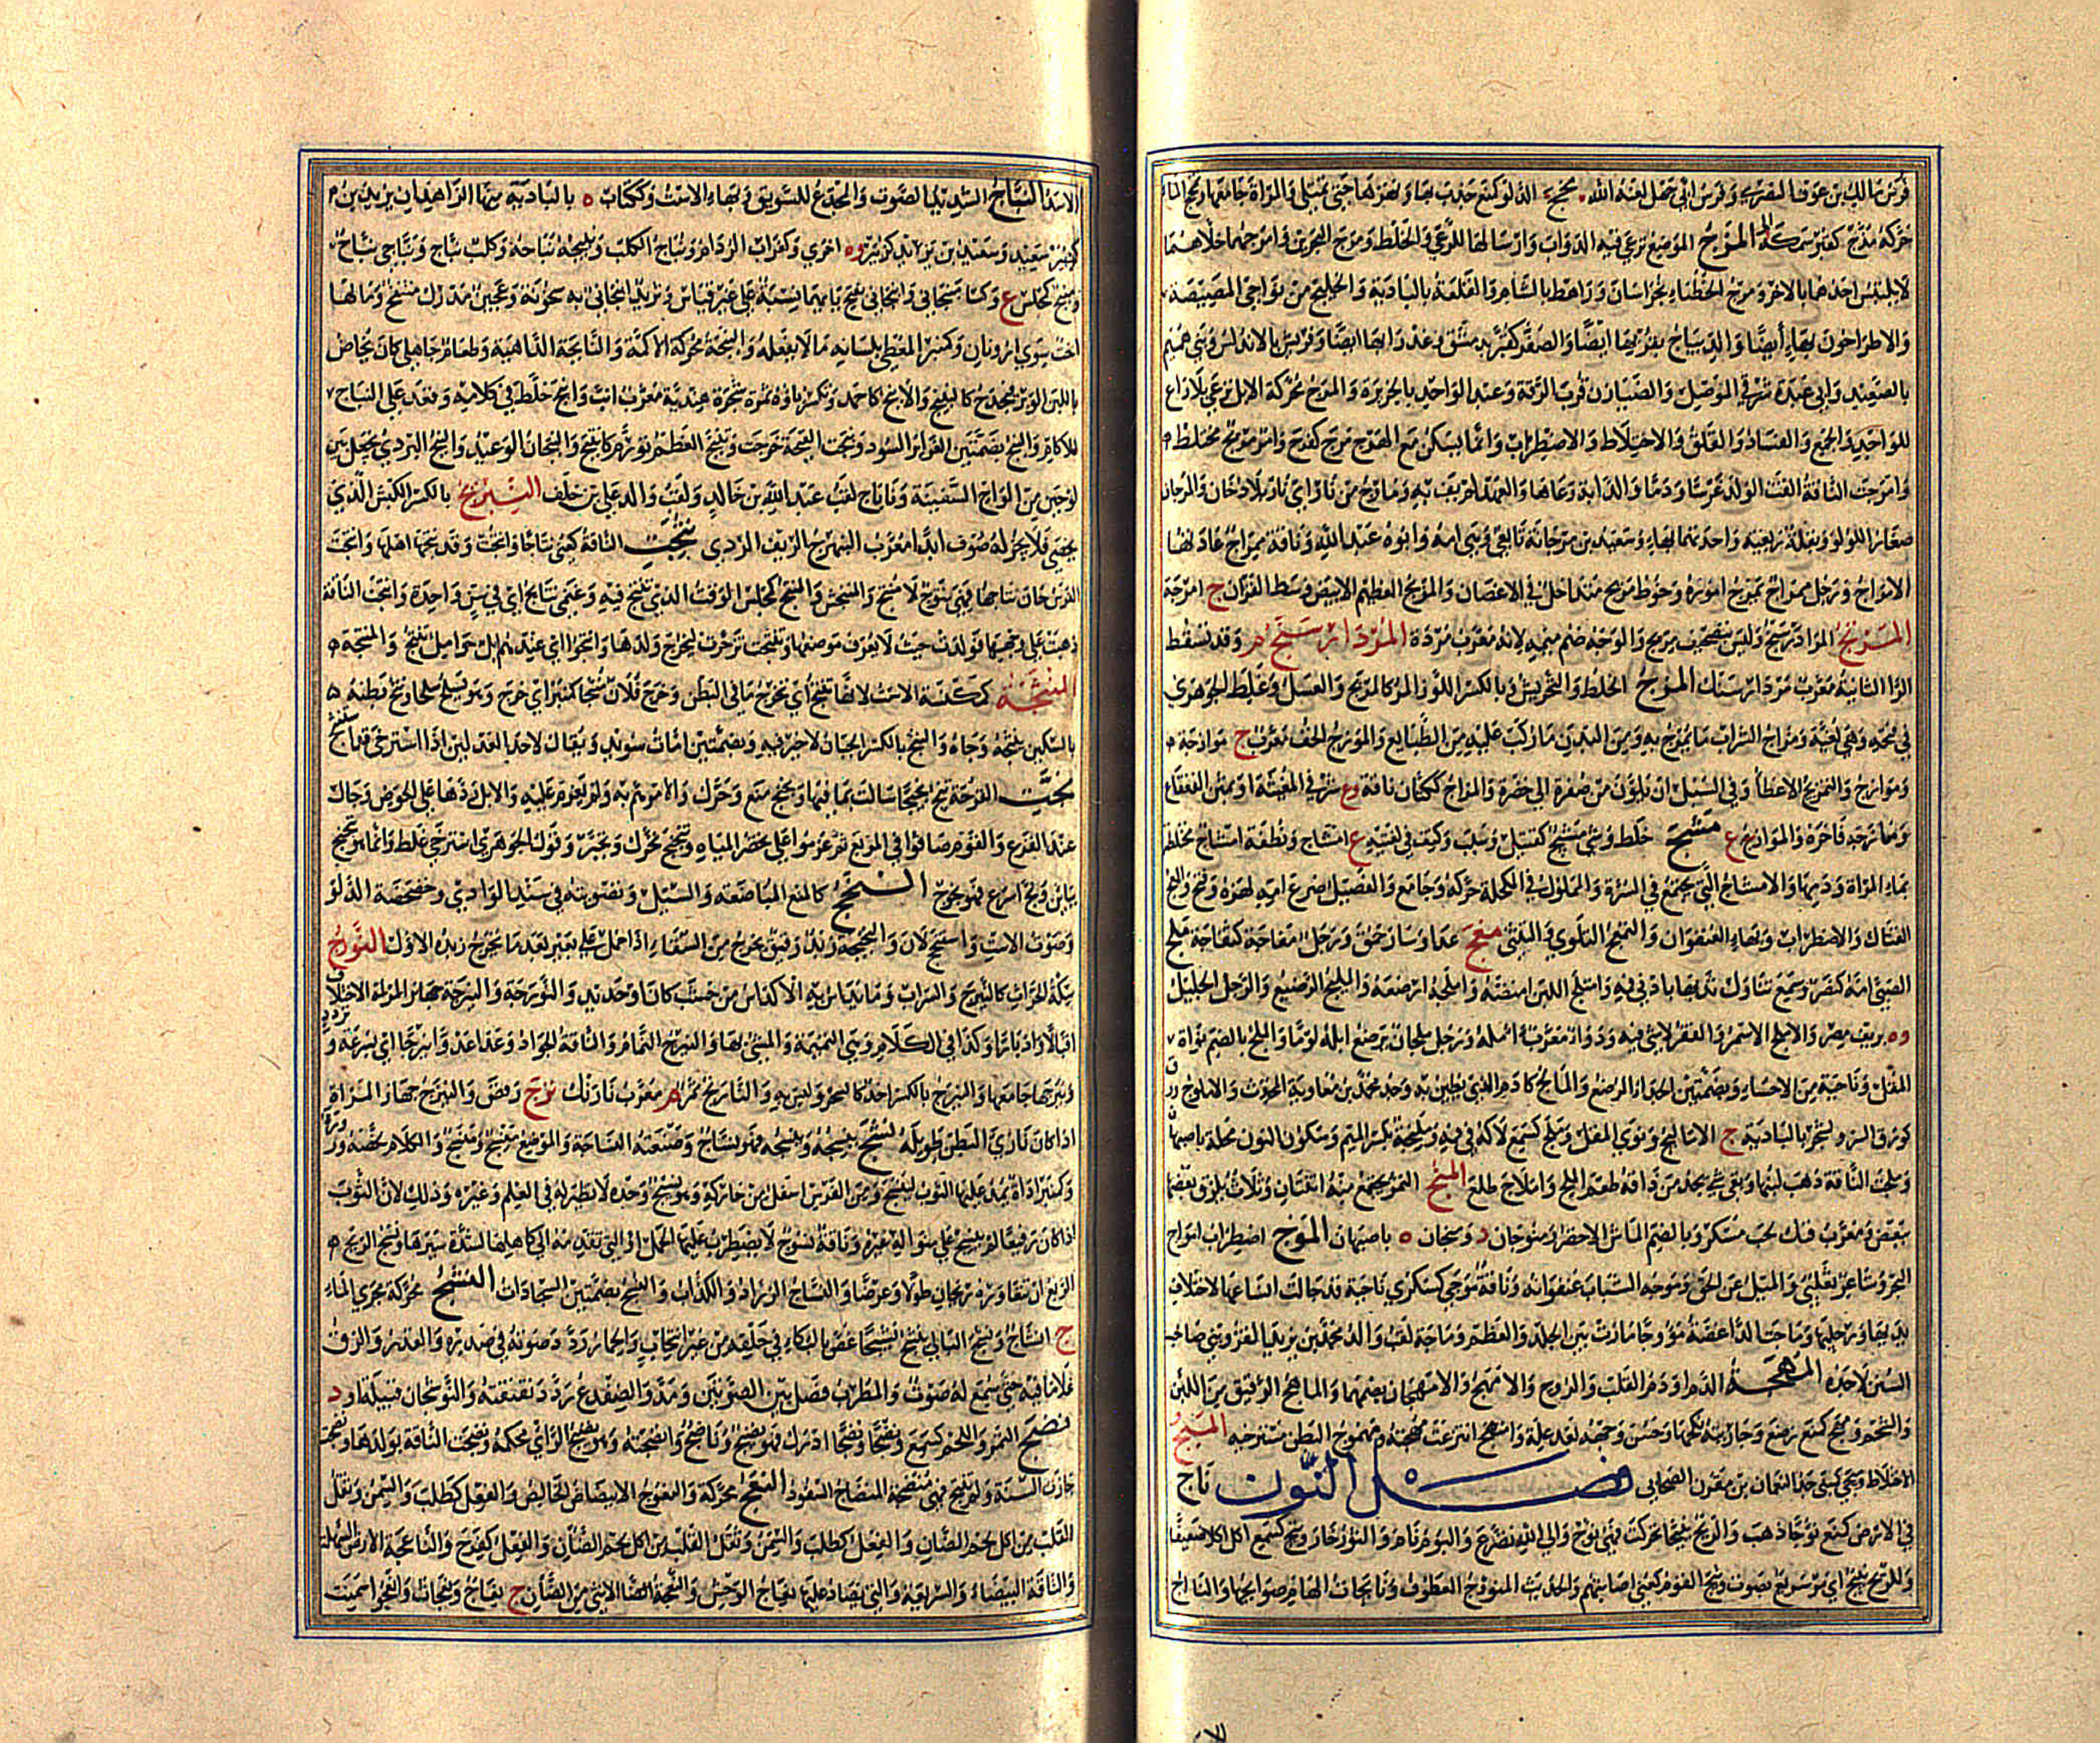 فرس مالك بن عوف النصري وفرس أبي جهل لعنه الله مخج الدلو كمنع جذب بها ونهزها حتى تمتلي والمرأة جامعها وتمخج الماء
حركه مذج كقبر سمكة المرج الموضع ترعى فيه الدواب وإرسالها للرعي والخلط ومرج البحرين وأمرجهما خلاهما
لا يلتبس أحدهما بالآخر ومرج الخطباء بخراسان وراهط بالشام والقلعة بالبادية والخليج من نواحي المصيصة
والأطراخون بها أيضا والديباج بقربها أيضا والصفر كقبر بدمشق وعذراء بها أيضا وفريش بالأندلس وبني هميم
بالصعيد وأبي عبدة شرقي الموصل والضيازن قرب الرقة وعبد الواحد بالجزيرة والمرج محركة الإبل ترعى بلا راع
للواحد والجمع والفساد والقلق والاختلاط والاضطراب وإنما يسكن مع الهرج مرج كفرح وأمر مريج مختلط
وأمرجت الناقة ألقت الولد غرسا ودما والدابة رعاها والعهد لم يف به ومارج من نار أي نار بلا دخان والمرجان
صغار اللؤلؤ وبقلة ربعية واحدتهما بهاء وسعيد بن مرجانة تابعي وهي أمه وأبوه عبد الله وناقة ممراج عادتها
الإمراج ورجل ممراج يمرج أموره وخوط مريج متداخل في الأغصان والمريج العظيم الأبيض وسط القرن ج أمرجة
المرتج المرداسنج وليس بتصحيف مريج والوجه ضم ميمه لأنه معرب مرده المرداسنج م وقد تسقط
الرا الثانية معرب مردار سنك المزج الخلط والتحريش وبالكسر اللوز المر كالمزيج والعسل وغلط الجوهري
في فتحه وهي لغية ومزاج الشراب ما يمزج به ومن البدن ما ركب عليه من الطبائع والموزج الخف معرب ج موازجة
وموازج والتمزيج الإعطاء وفي السنبل أن يلون من صفرة إلى خضرة والمزاج ككتان ناقة وع شرقي المغيثة أو يمين القعقاع
ومازجه فاخره والموازج ع مشج خلط وشيء مشيج كقتيل وسبب وكتف في لغتيه ع أمشاج ونطفة أمشاج مختلطة
بماء المرأة ودمها والأمشاج التي تجتمع في السرة
معج
الصبي أمه كنصر وسمع تناول ثديها بأدنى فيه وامتلج اللبن امتصه وأملجه أرضعه والمليج الرضيع والرجل الجليل
وة بريف مصر والأملج الأسمر والقفر لا شيء فيه ودواء معرب أمله ورجل ملجان يرضع إبله لؤما والملج بالضم نواة
المقل وناحية من الأحساء وبضمتين الجداء الرضع والمالج كآدم الذي يطين به وجد محمد بن معاوية المحدث والأملوج ورق
كورق السرو لشجر بالبادية ج الأماليج ونوى المقل وملج كسمع لاكه في فيه وملنجة بكسر الميم وسكون النون محلة بأصبهان
وملجت الناقة ذهب لبنها وبقي شيء يجد من ذاقه طعم الملح المنج التمر تجتمع منه اثنتان وثلاث يلزق بعضها
ببعض ومعرب منك لحب مسكر وبالضم الماش الأخضر ومنوجان د ومنجان ة بأصبهان الموج اضطراب أمواج
البحر وشاعر تغلبي والميل عن الحق وموجة الشباب عنفوانه وناقة موجى كسكرى ناجية قد جالت أنساعها لاختلاف
يديها ورجليها وماجت الداغصة مؤوجا مارت بين الجلد والعظم وماجة لقب والد محمد بن يزيد القزويني صاحب
السنن لا جده المهجة الدم أو دم القلب والروح والأمهج والأمهجان بضمهما والماهج الرقيق من اللبن
والشحم ومهج كمنع رضع وجاريته نكحها وحسن وجهه بعد علة وامتهج انتزعت مهجته وممهوج البطن مسترخيه الميج
الاختلاط وميجى كميمى جد النعمان بن مقرن الصحابي فصل النون نأج
في الأرض كمنع نؤوجا ذهب والريح نئيجا تحركت فهي نؤوج وإلى الله تضرع والبوم نأم والثور خار ونئج كسمع أكل أكلا ضعيفا
وللريح نئيج أي مر سريع بصوت ونئج القوم كعني أصابتهم والحديث المنؤوج المعطوف ونائجات الهام صوائحها والنأاج
الأسد النباج الشديد الصوت والمجدح للسويق وبهاء الاست وككتاب ة بالبادية منها الزاهدان يزيد بن
سعيد وسعيد بن بريد كزبير وة أخرى وكغراب الردام ونباج الكلب ونبيجه نباحه وكلب نباج ونباجي نباح
ومنبج كمجلس ع وكساء منبجاني وأنبجاني بفتح بائهما نسبة على غير قياس وثريد أنبجاني به سخونة وعجين مدرك منتفخ وما لها
أخت سوى أرونان وكمنبر المعطي بلسانه ما لا يفعله والنبجة محركة الأكمة والنابجة الداهية وطعام جاهلي كان يخاض
باللبن الوبر يجدح كالنبيج والأنبج كأحمد وتكسر باؤه ثمرة شجرة هندية معرب أنب وأنبج خلط في كلامه وقعد على النباج
للآكام والنبج بضمتين الغرائر السود ونبجت القبجة خرجت وتنبج العظم تورم كانتبج والنبجان الوعيد والنبج البردي يجعل بين
لوحين من ألواح السفينة ونباج لقب عبد الله بن خالد ولقب والد علي بن خلف النبريج بالكسر الكبش الذي
يخصى فلا يجز له صوف أبدا معرب النبهرج الزيف الردي نتجت الناقة كعني نتاجا وأنتجت وقد نتجها أهلها وأنتجت
الفرس حان نتاجها فهي نتوج لا منتج والمنتج كمجلس الوقت الذي تنتج فيه وغنمي نتائج أي في سن واحدة وانتتجت الناقة
ذهبت على وجهها فولدت حيث لا يعرف موضعها وتنتجت تزحرت ليخرج ولدها وأنتجوا أي عندهم إبل حوامل تنتج
المنثجة كمكنسة الاست لأنها تنثج أي تخرج ما في البطن وخرج فلان منثجا كمنبر أي خرج وهو يسلح سلحا ونثج بطنه
بالسكين ينثجه وجأه والنثج بالكسر الجبان لا خير فيه وبضمتين أمات سويد ويقال لأحد العدلين إذا استرخى قد استنثج
نجت القرحة تنج نجيجا سالت بما فيها ونجنج منع وحرك والأمر هم به ولم يعزم عليه والإبل ردها على الحوض وجال
عند الفزع والقوم صافوا في المربع ثم عزموا على محضر المياه وتنجنج تحرك وتحير وقول الجوهري استرخى غلط وإنما هو تبجبج
بباءين ونج أسرع فهو نجوج النخج كالمنع المباضعة والسيل وتصويته في سند الوادي وخضخضة الدلو
وصوت الاست واستنخج لان والنخيجة زبد رقيق يخرج من السقاء إذا حمل على بعير بعدما يخرج زبده الأول النورج
سكة الحراث كالنيرج والسراب وما يداس به الأكداس من خشب كان أو حديد والنورجة والنيرجة
إقبالا وإدبارا وكذا في الكلام وهي النميمة والمشي بها والنيرج النمام والناقة الجواد وعدا عدوا نيرجا أي بسرعة وتردد
ونيرجها جامعها والنيرنج بالكسر أخذ كالسحر وليس به والنارنج ثمر م معرب نارنك نزج رقص والنيزج جهاز المرأة
إذا كان نازي البظر طويله نسج ينسجه وينسجه فهو نساج وصنعته النساجة والموضع منسج ومنسج والكلام لخصه وزوره
وكمنبر أداة يمد عليها الثوب لينسج ومن الفرس أسفل من حاركه وهو نسيج وحده لا نظير له في العلم وغيره وذلك لأن الثوب
إذا كان رفيعا لم ينسج على منواله غيره وناقة نسوج لا يضطرب عليها الحمل أو التي تقدمه إلى كاهلها لشدة سيرها ونسج الريح
الربع أن تتعاوره ريحان طولا وعرضا والنساج الزراد والكذاب والنسج بضمتين السجادات النشج محركة مجرى الماء
ج أنشاج ونشج الباكي ينشج نشيجا غص بالبكاء في حلقه من غير انتحاب والحمار ردد صوته في صدره والقدر والزق
غلا ما فيه حتى سمع له صوت والمطرب فصل بين الصوتين ومد والضفدع ردد نقنقته والنوشجان قبيلة أو د
نضج الثمر واللحم كسمع نضجا ونضجا أدرك فهو نضيج وناضج وأنضجته وهو نضيج الرأي محكمه ونضجت الناقة بولدها ونضجت
جازت السنة ولم تنتج فهي منضجة المنضاج السفود النعج محركة والنعوج الابيضاض الخالص والفعل كطلب والسمن وثقل
القلب من أكل لحم الضأن والفعل كطلب والسمن وثقل القلب من أكل لحم الضأن والفعل كفرح والناعجة الأرض السهلة
والناقة البيضاء والسريعة والتي يصاد عليها نعاج الوحش والنعجة الأنثى من الضأن ج نعاج ونعجات وأنعجوا سمنت